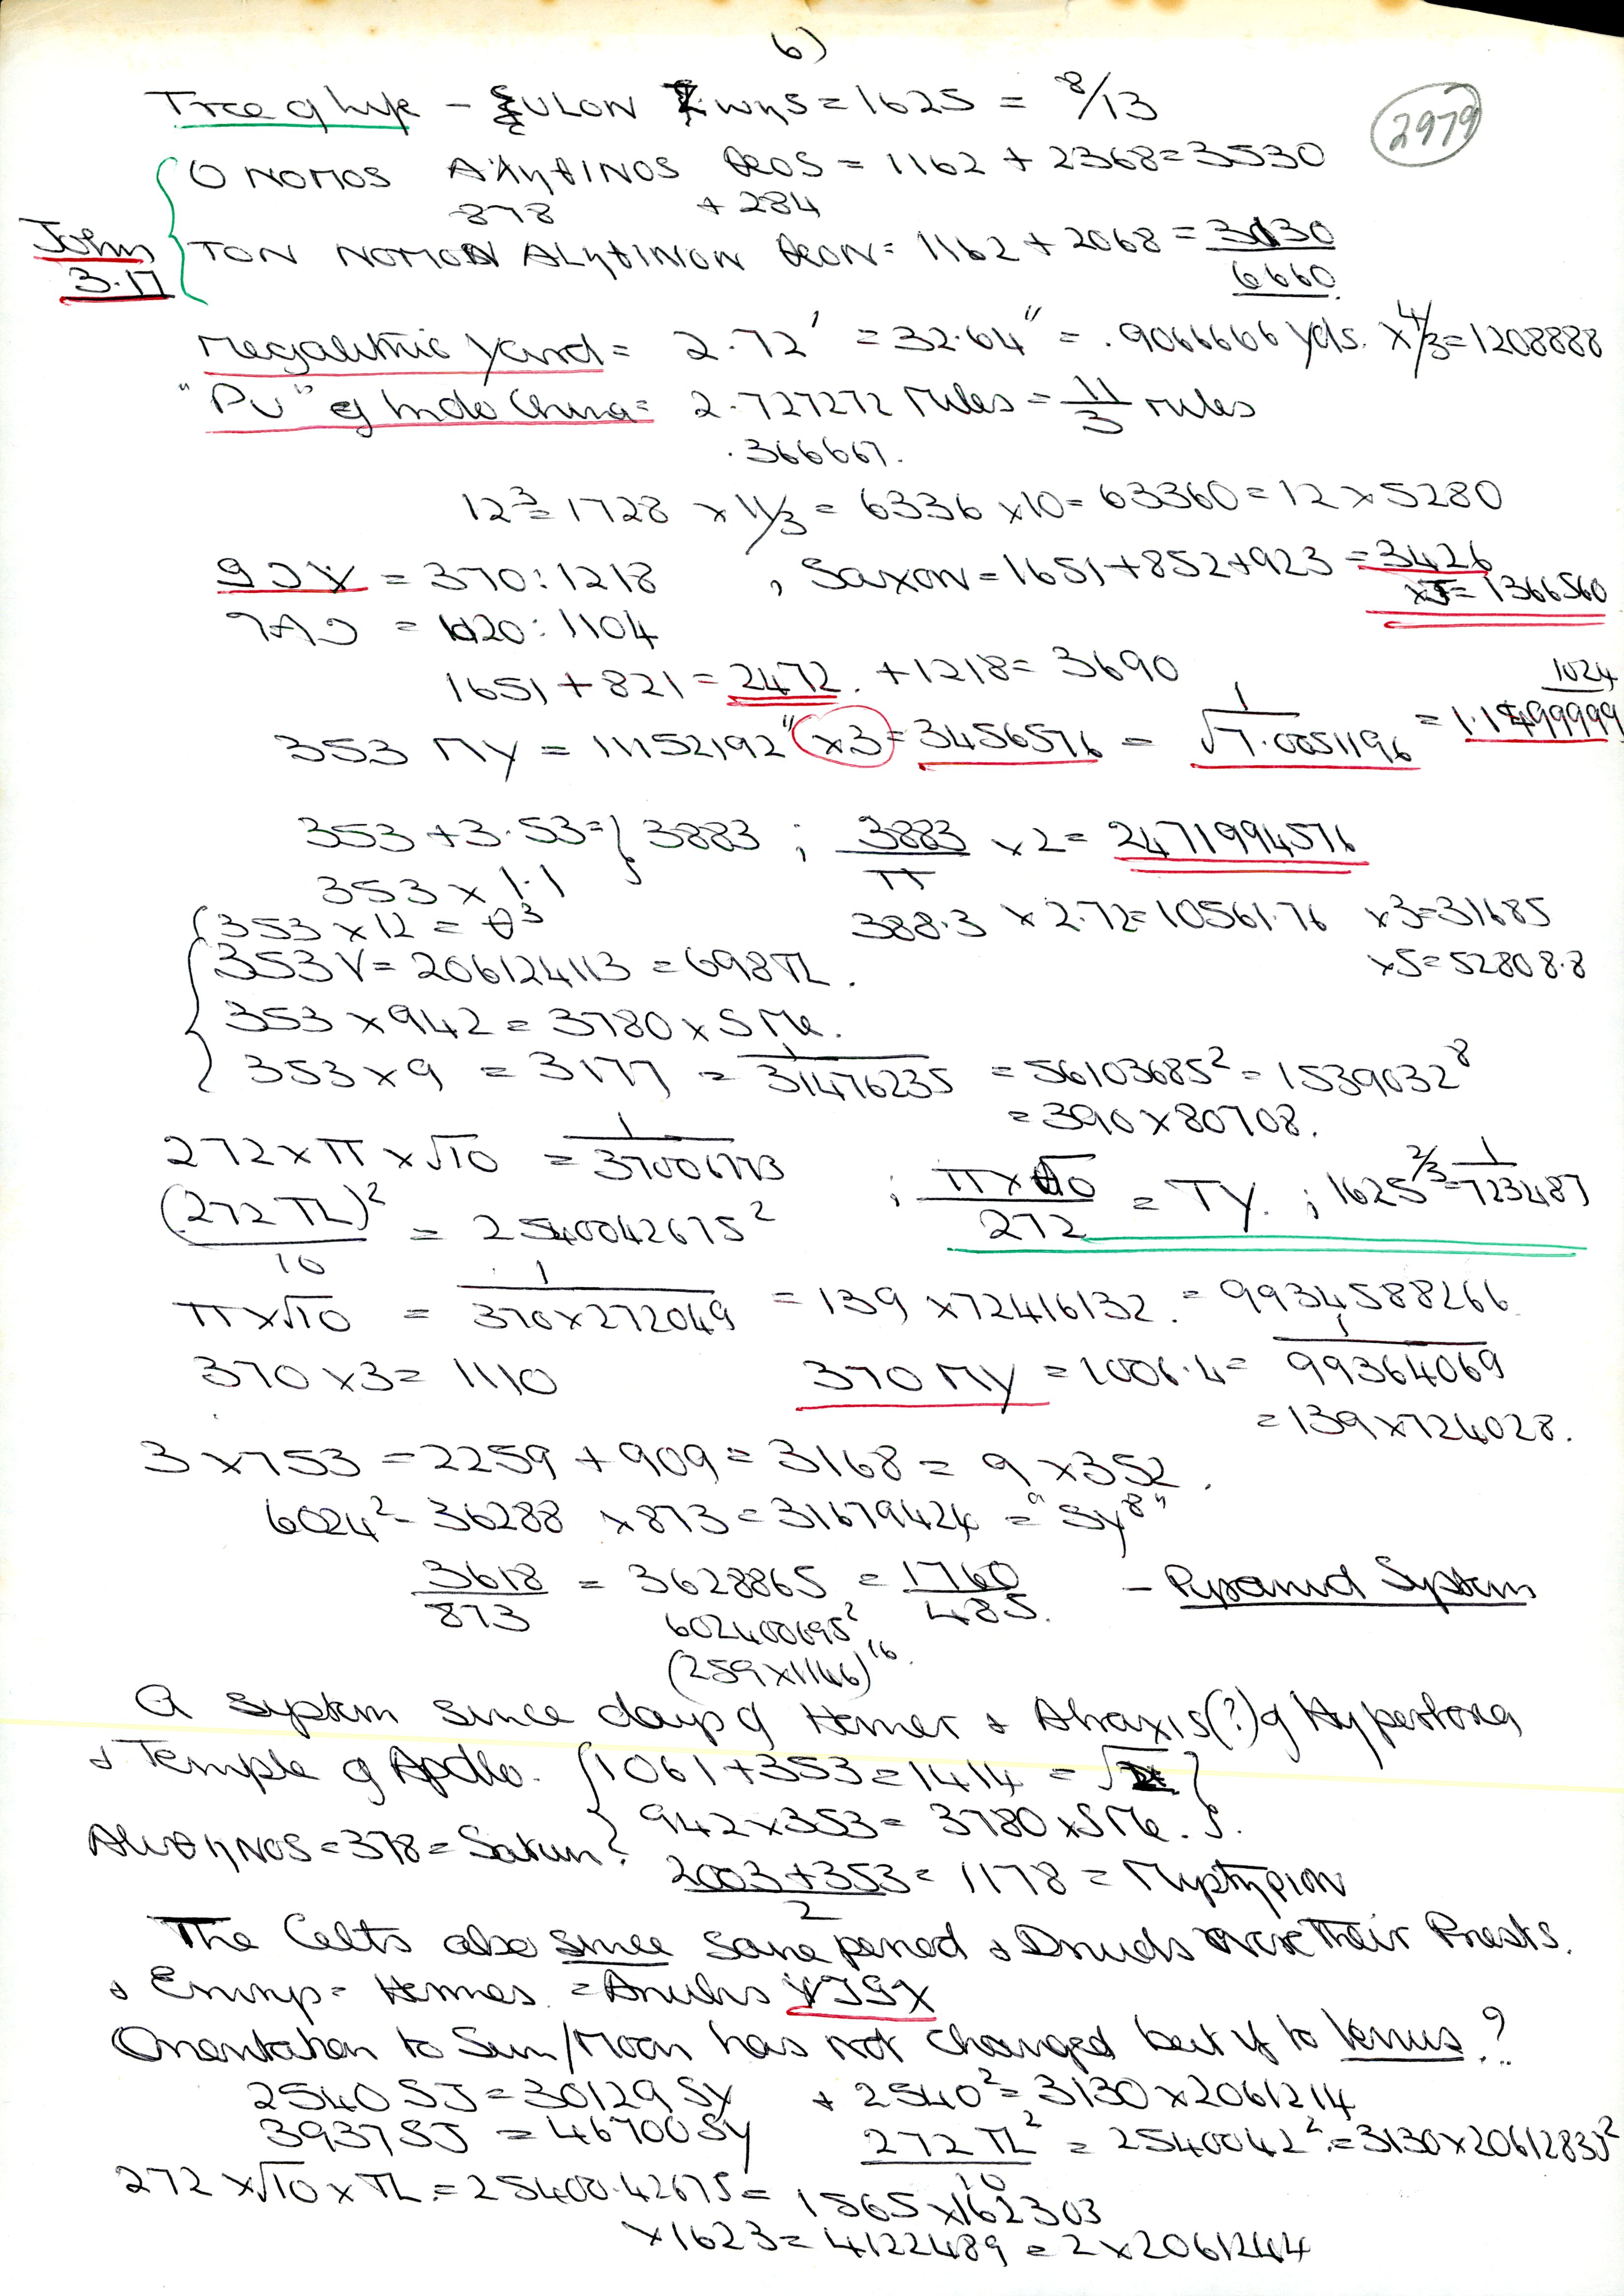 6)
2979
Tree of Life – ξULON Zwης = 1625 = 8/13
O NOMOS AΛηθINOS θEOS = 1162 + 2368 = 3530
878 + 284
John 3.17
TON NOMON ALηθINON θEON = 1162 + 2068 = 3130
6660
Megalithic Yard = 2.72' = 32.64" = .9066666 yds. x 4/3 = 1208888
"PU" of Indo China = 2.727272 miles = 11/3 miles
.366667.
12³ = 1728 x 11/3 = 6336 x 10 = 63360 = 12 x 5280
= 370 : 1218 , Saxon = 1651 + 852 + 923 = 3426
= 1366560
= 1020 : 1104
1651 + 821 = 2472. + 1218 = 3690
353 MY = 11152192" x3 = 3456576 = 1/√7.0051196 =
1024
353 + 3.53 = } 3883 ; 3883/π x 2 = 2471994576
353 x 1.1
353 x 12 = θ³ 388.3 x 2.72 = 10561.76 x3 = 31685
353 V = 206124113 = 698 TL. x5 = 52808.8
353 x 942 = 3780 x SMe.
353 x 9 = 3177 = 1/31476235 = 56103685² = 1539032⁸
= 390 x 80708.
272 x π x √10 = 1/37006773 ; π x √10/272 = TY. ; 1625^2/3 = 1/723487
(272 TL)²/10 = 2540042675²
π x √10 = 1/370 x 272049 = 139 x 72416132. = 9934588266
370 x 3 = 1110 370 MY = 1006.4 = 1/99364069
= 139 x 724028.
3 x 753 = 2259 + 909 = 3168 = 9 x 352.
6024² = 36288 x 873 = 31679424 = "SY⁸"
3618/873 = 3628865 = 1760/485. – Pyramid System
602400695²
(259 x 1146)¹⁶.
A system since days of Homer & Abraxis(?) of Hyperborea
& Temple of Apollo. {1061 + 353 = 1414 = √2}
942 x 353 = 3780 x SMe.
= 378 = Saturn?
2003 + 353/2 = 1178 =
The Celts also since same period & Druids were their Priests.
& = Hermes. = Anubis
Orientation to Sun/Moon has not changed but if to Venus?
2540 SJ = 30129 SY + 2540² = 3130 x 2061214
3937 SJ = 46700 SY 272 TL²/10 = 2540042² = 3130 x
272 x √10 x TL = 25400.42675 = 1565 x 162303
x 1623 = 4122489 = 2 x 2061244